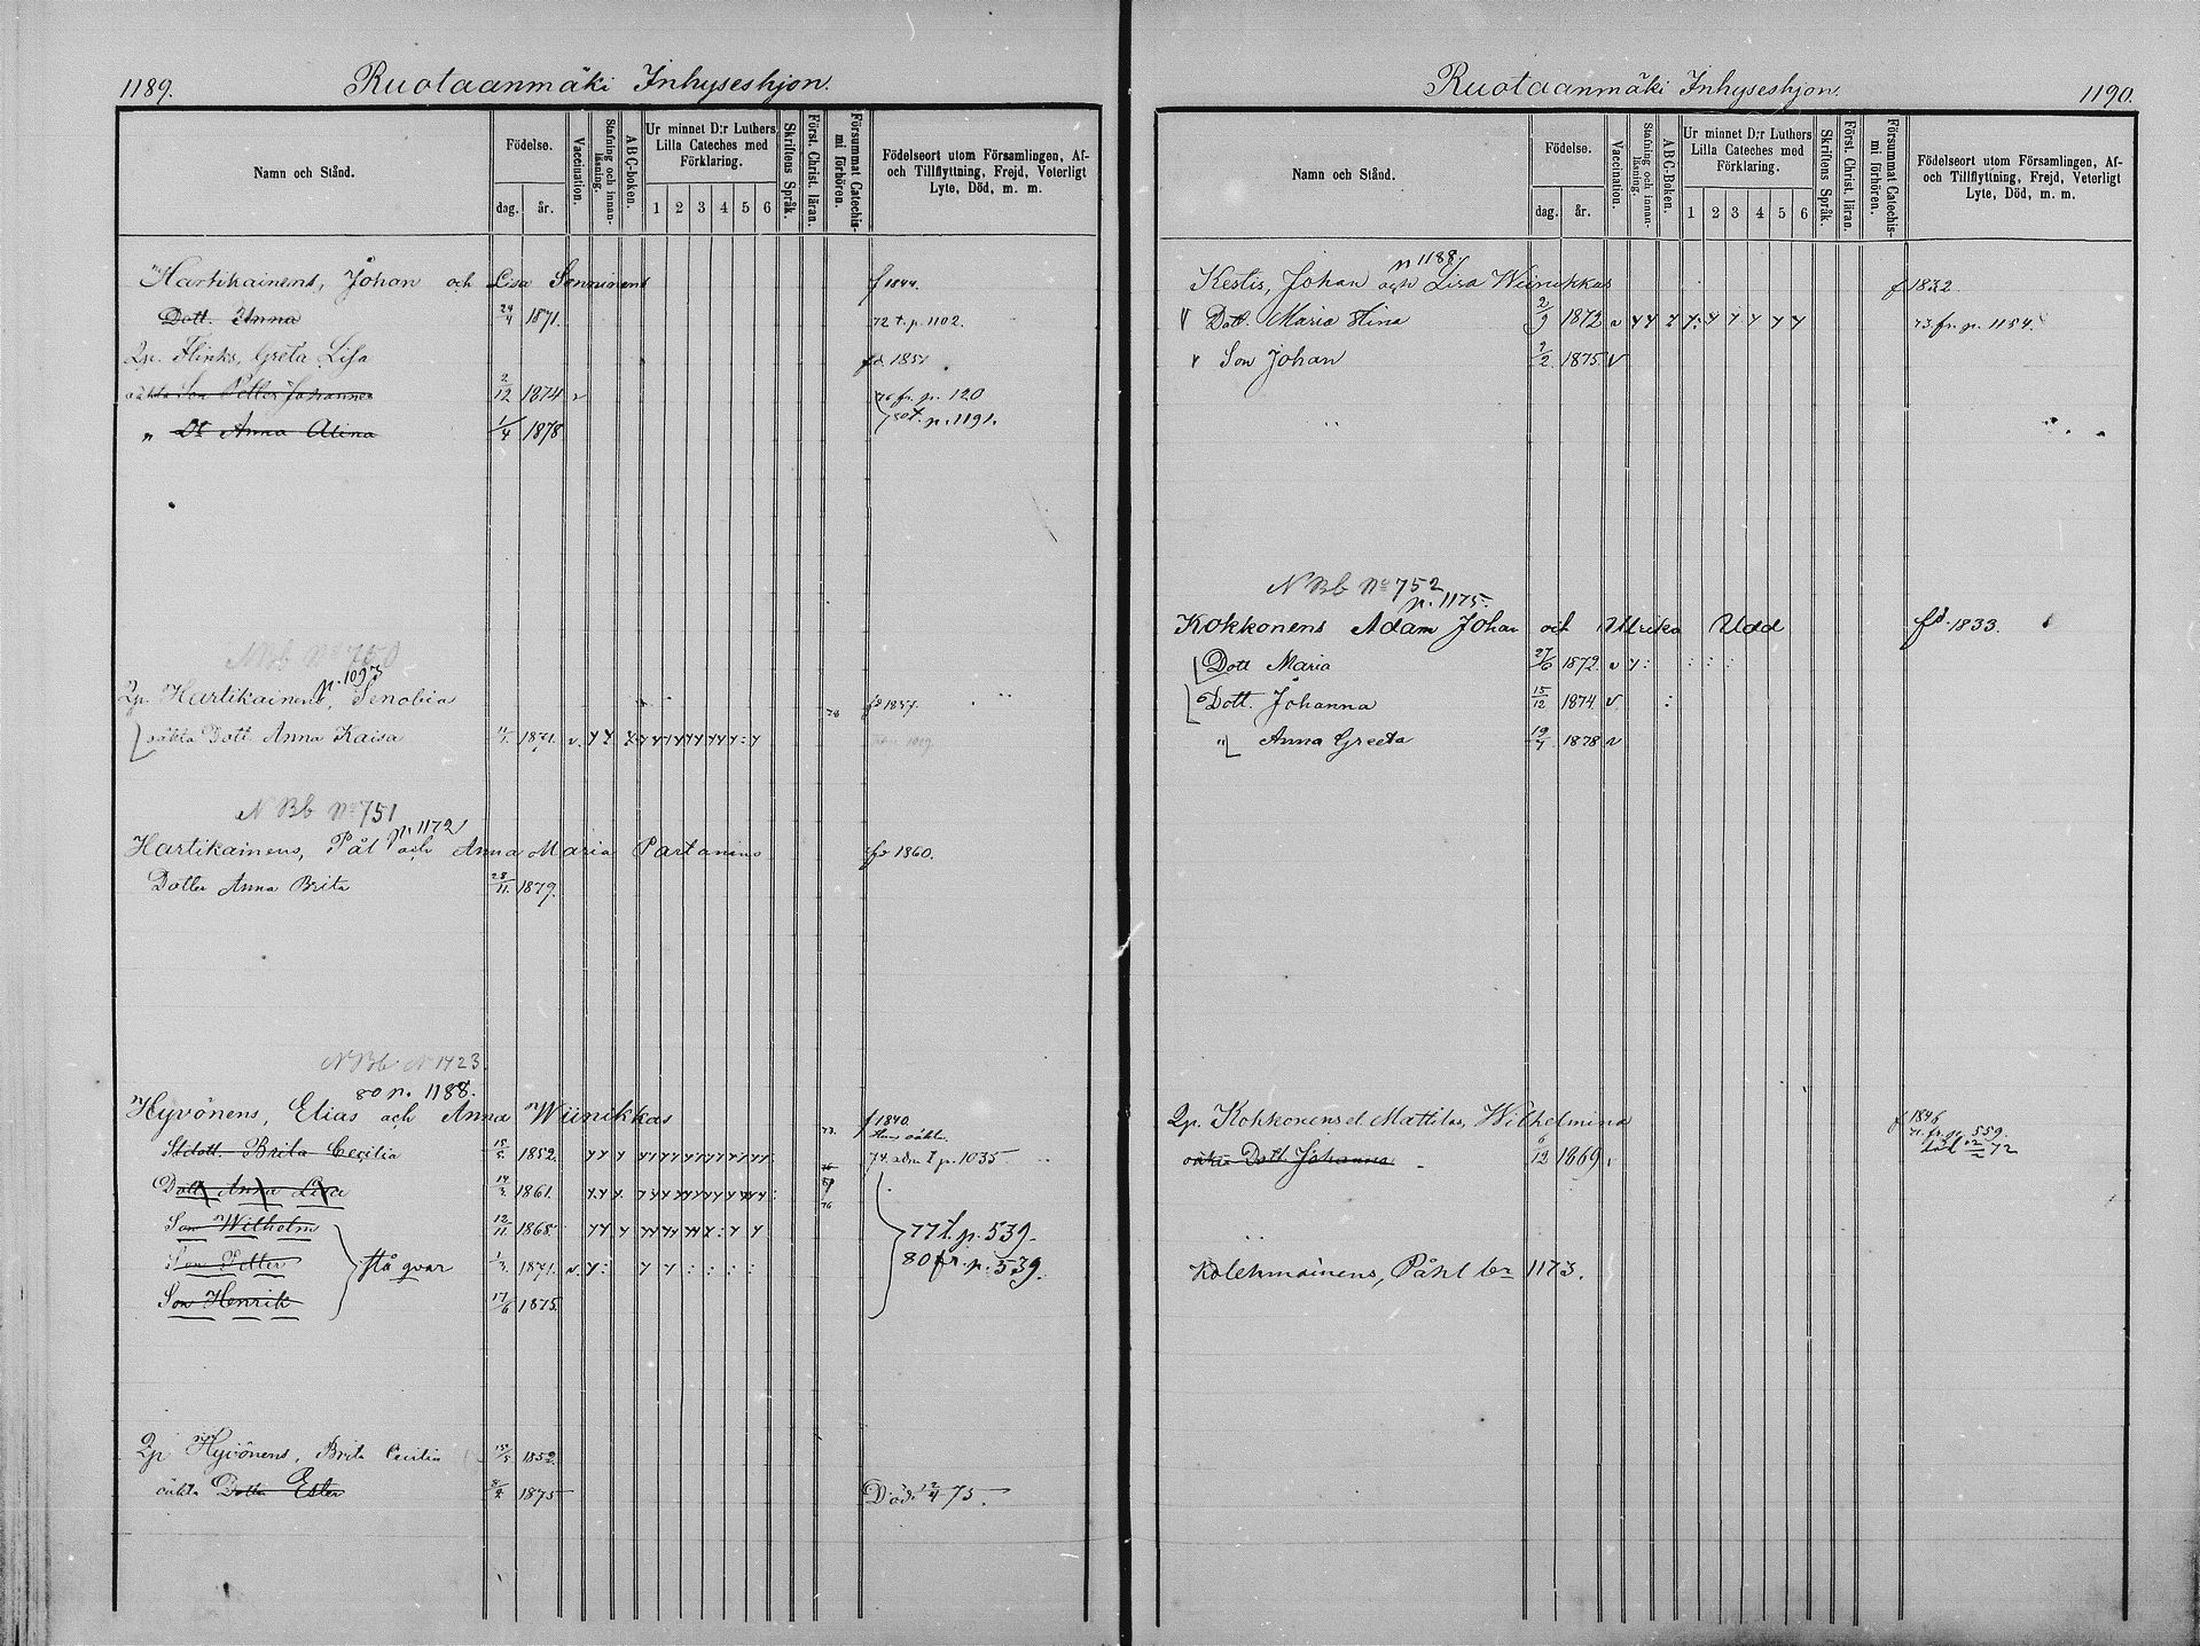 1189.
Ruotaanmäki Inhyseshjon.
Namn och Stånd.
Födelse.
dag. år.
Vaccination.
Stafning och innan-läsning.
ABC-boken.
Ur minnet D:r Luthers
Lilla Cateches med
Förklaring.
1 2 3 4 5 6
Skriftens Språk.
Först. Christ. läran.
Försummat Catechis-
mi förhören.
Födelseort utom Församlingen, Af-
och Tillflyttning, Frejd, Veterligt
Lyte, Död, m. m.
Hartikainens, Johan och Lisa Sonninens f 1844.
Dott. Anna 24/4 1871. 72 t. p. 1102.
Qp. Flinks, Greta Lisa fd 1851
oäkta Son Petter Johannes 2/12 1874 v 76 fr. p. 120
" Dr Anna Alina 1/4 1878 80 t. p. 1191.
NBb No 750
p. 1093
Qp. Hartikainens, Senobia 78 fd 1857.
oäkta Dott. Anna Kaisa 1871. v.
N Bb No 751
p. 1172
Hartikainens, Pål och Anna Maria Partanens fd 1860.
Dotter Anna Brita 28/11. 1879.
N Bb N 1423.
80 p. 1188.
Hyvönens, Elias och Anna Wiinikkas 77. f 1840.
Stdott. Brita Cecilia 15/5 1852. 74 adm t p. 1035
Dott Anna Lisa 14/3 1861. 76
Son Wilhelm 12/11 1868. 77 t. p. 539.
Son Petter stå qvar 1/3. 1871. v. 80 fr. p. 539.
Son Henrik 17/6 1875.
Qp Hyvönens, Brita Cecilia 15/5 1852
oäkta Dotter Ester 1875 Död 75.
Ruotaanmäki Inhyseshjon.
1190.
Namn och Stånd.
Födelse.
dag. år.
Vaccination.
Stafning och innan-läsning.
ABC-Boken.
Ur minnet D:r Luthers
Lilla Cateches med
Förklaring.
1 2 3 4 5 6
Skriftens Språk.
Först. Christ. läran.
Försummat Catechis-
mi förhören.
Födelseort utom Församlingen, Af-
och Tillflyttning, Frejd, Veterligt
Lyte, Död, m. m.
p 1188.
Kestis, Johan och Lisa Wiinikkas f 1832.
V Dott. Maria Stina 2/9 1872 v 73. fr. p. 1154.
v Son Johan 2/2. 1875. V
N Bb No 752
p. 1175.
Kokkonens Adam Johan och Ulrika Udd fd. 1833.
Dott Maria 27/6 1872. v
Dott. Johanna 15/12 1874. v.
" Anna Greeta 19/4 1878 v
Qp. Kokkonens el Mattilas, Wilhelmina f 1846
71. fr. p. 559.
oäkta Dott Johanna 6/12 1869 v död 72
Kolehmainens, Påhl br 1173.